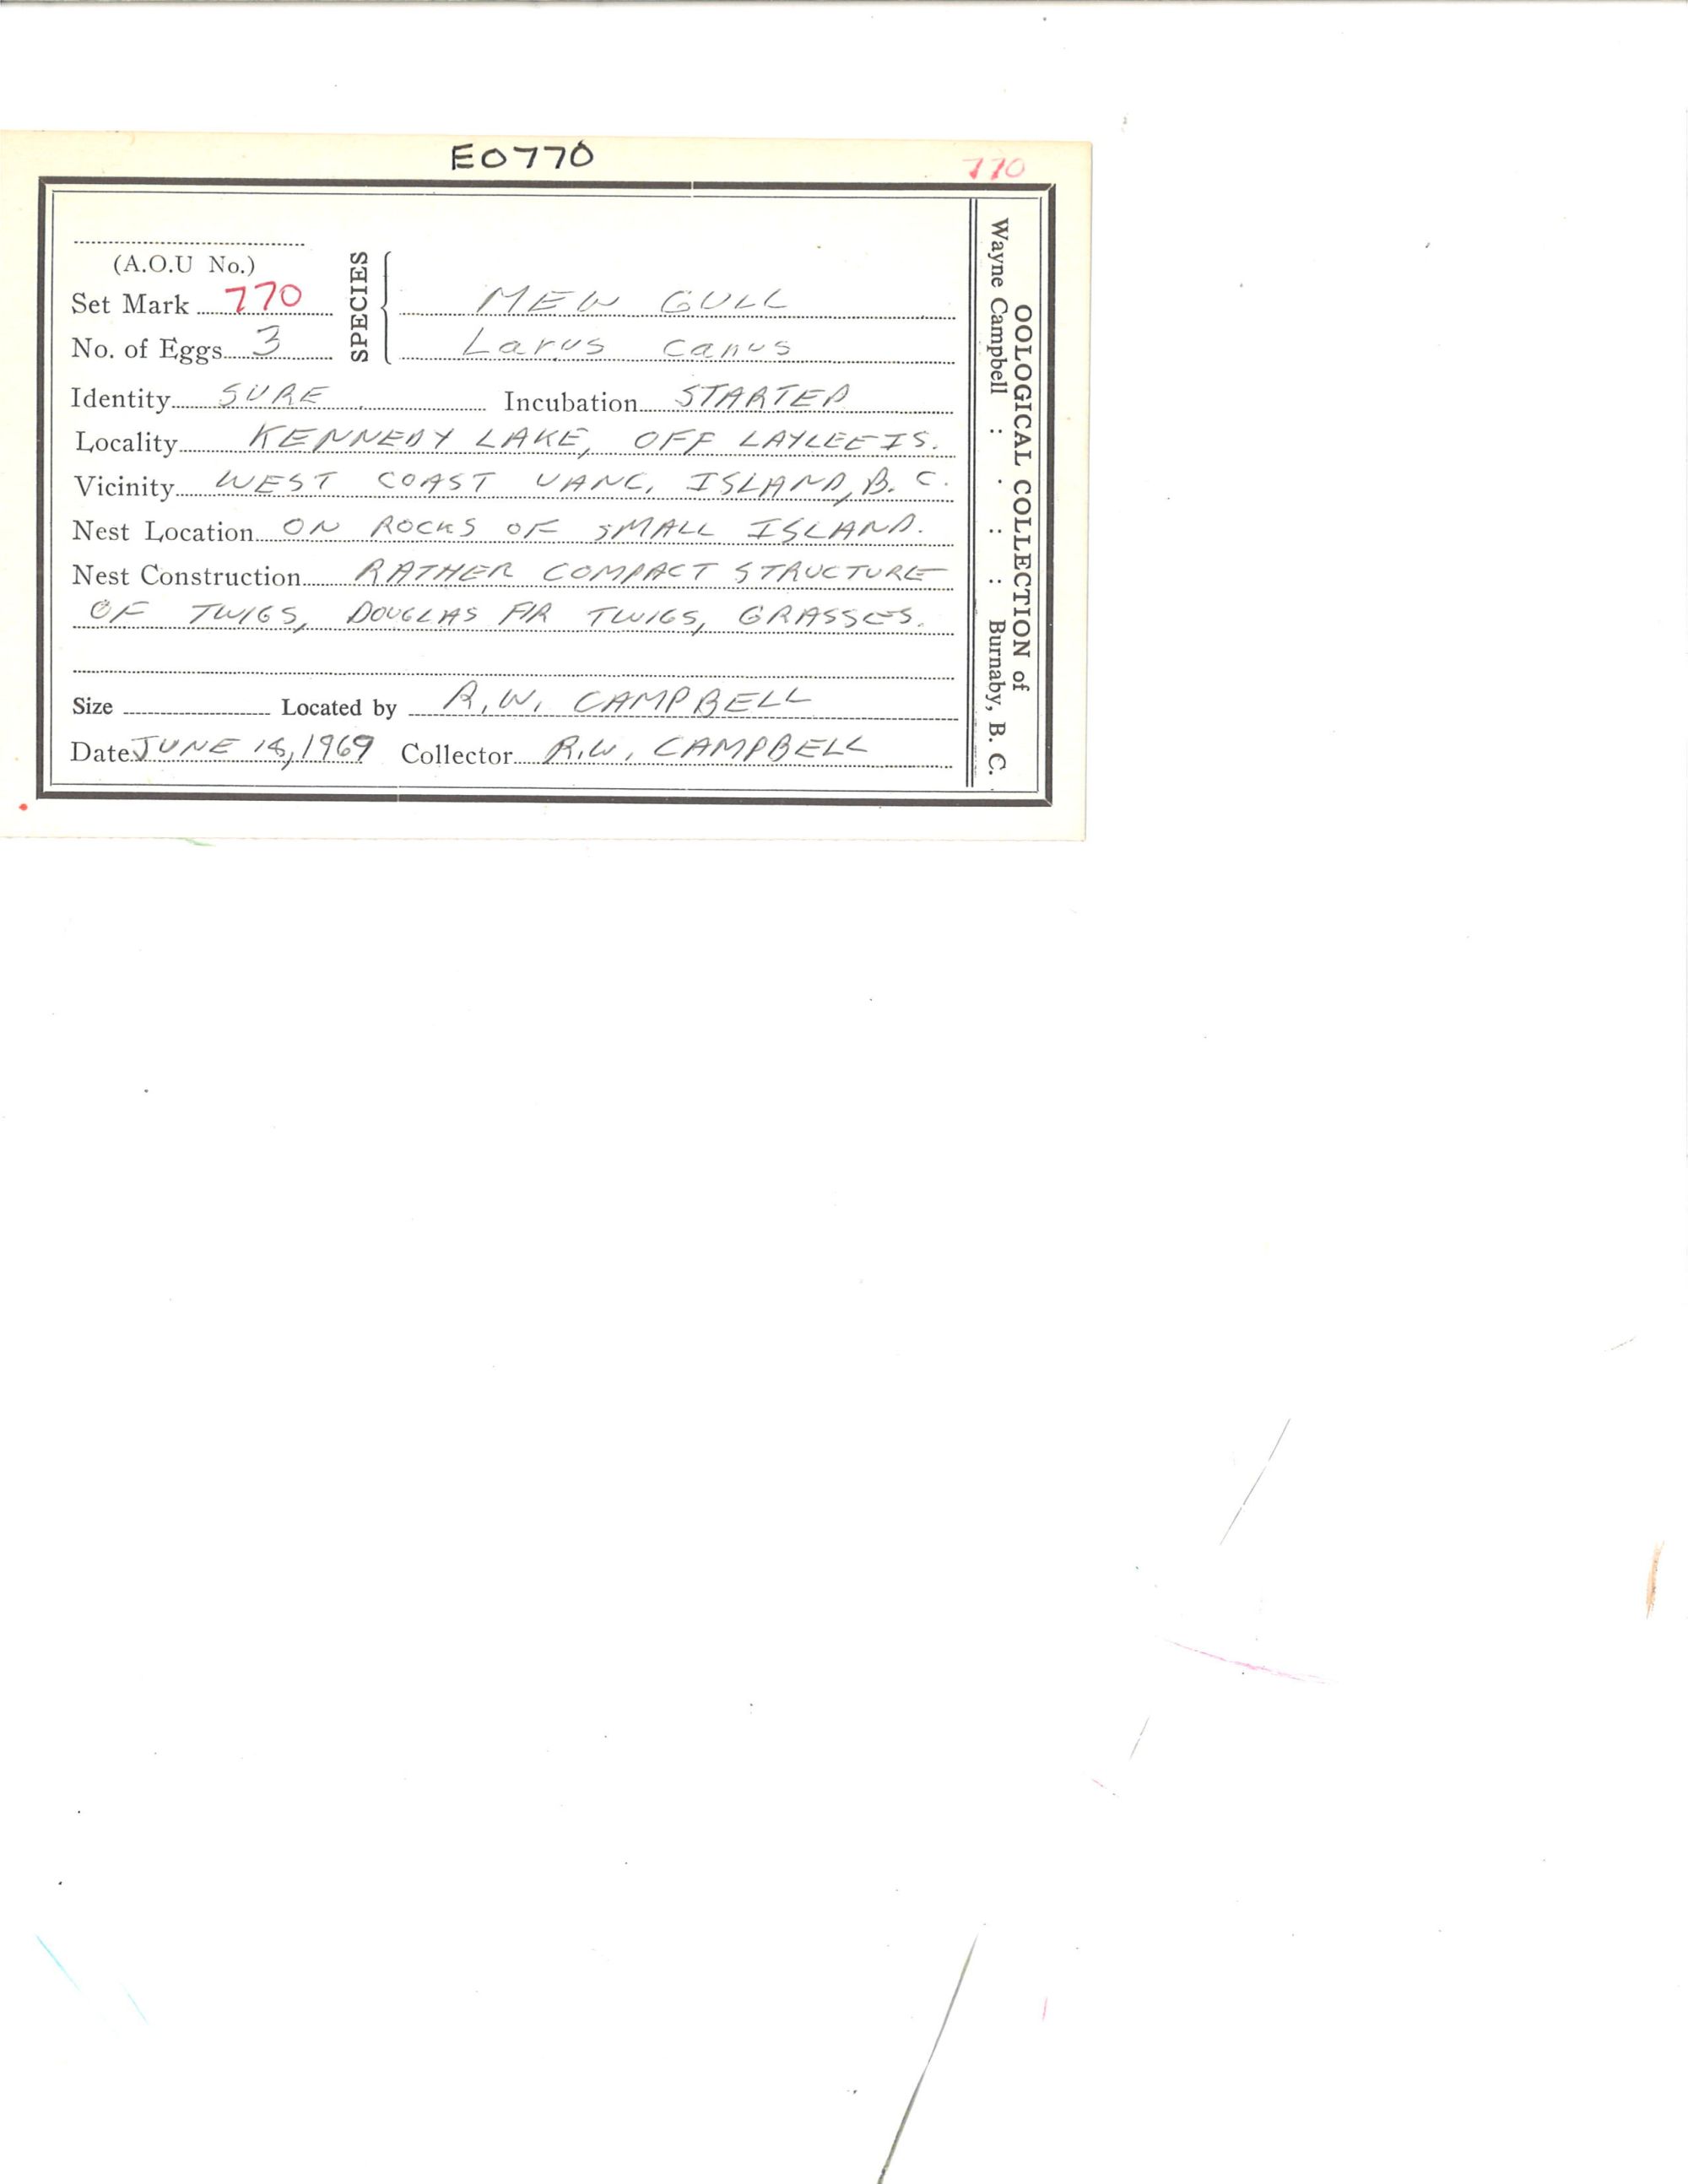 E0770
770
(A.O.U No.)
Set Mark 770
No. of Eggs 3
SPECIES
MEW GULL
Larus canus
Identity SURE Incubation STARTED
Locality KENNEDY LAKE, OFF LAYLEE IS.
Vicinity WEST COAST VANC. ISLAND, B. C.
Nest Location ON ROCKS OF SMALL ISLAND.
Nest Construction RATHER COMPACT STRUCTURE
OF TWIGS, DOUGLAS FIR TWIGS, GRASSES.
Size Located by R.W. CAMPBELL
Date JUNE 1969 Collector R.W. CAMPBELL
OOLOGICAL COLLECTION of
Wayne Campbell : . : : Burnaby, B. C.